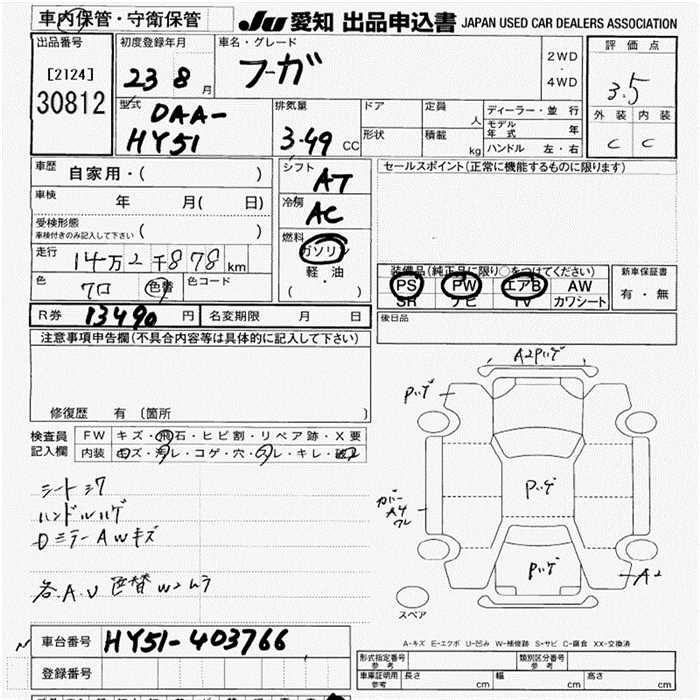 車内保管・守衛保管
JU 愛知 出品申込書 JAPAN USED CAR DEALERS ASSOCIATION
出品番号
[2124]
30812
初度登録年月
23 8 月
車名・グレード
フーガ
2WD
・
4WD
評価点
3.5
外装 内装
C C
型式
DAA-
HY51
排気量
3.49 CC
ドア
定員
人
形状
積載
kg
ディーラー・並行
モデル年式 年
ハンドル 左・右
車歴
自家用・( )
車検
年 月( 日)
受検形態
車検付きのみ記入して下さい ( )
走行
14万2千878 km
色
クロ
色替
色コード
シフト
AT
冷房
AC
燃料
ガソリン
軽・油
( ・ )
セールスポイント(正常に機能するものに限ります)
装備品(純正品に限り○をつけてください)
PS PW エアB AW
SR ナビ TV カワシート
新車保証書
有・無
後日品
R券 13490 円
名変期限 月 日
注意事項申告欄(不具合内容等は具体的に記入して下さい)
修復歴 有 〔箇所 〕
検査員
記入欄
FW キズ・飛石・ヒビ割・リペア跡・X要
内装 キズ・汚レ・コゲ・穴・スレ・キレ・破レ
シートシワ
ハンドルハゲ
DミラーAWキズ
各A.U 色替Wムラ
A2Pハゲ
Pハゲ
Pハゲ
カバー
A4
ワレ
Pハゲ
A2
スペア
A-キズ E-エクボ U-凹み W-補修跡 S-サビ C-腐食 XX-交換済
車台番号 HY51-403766
登録番号
形式指定番号
参考
類別区分番号
参考
車庫証明用
参考
長さ cm
幅 cm
高さ cm